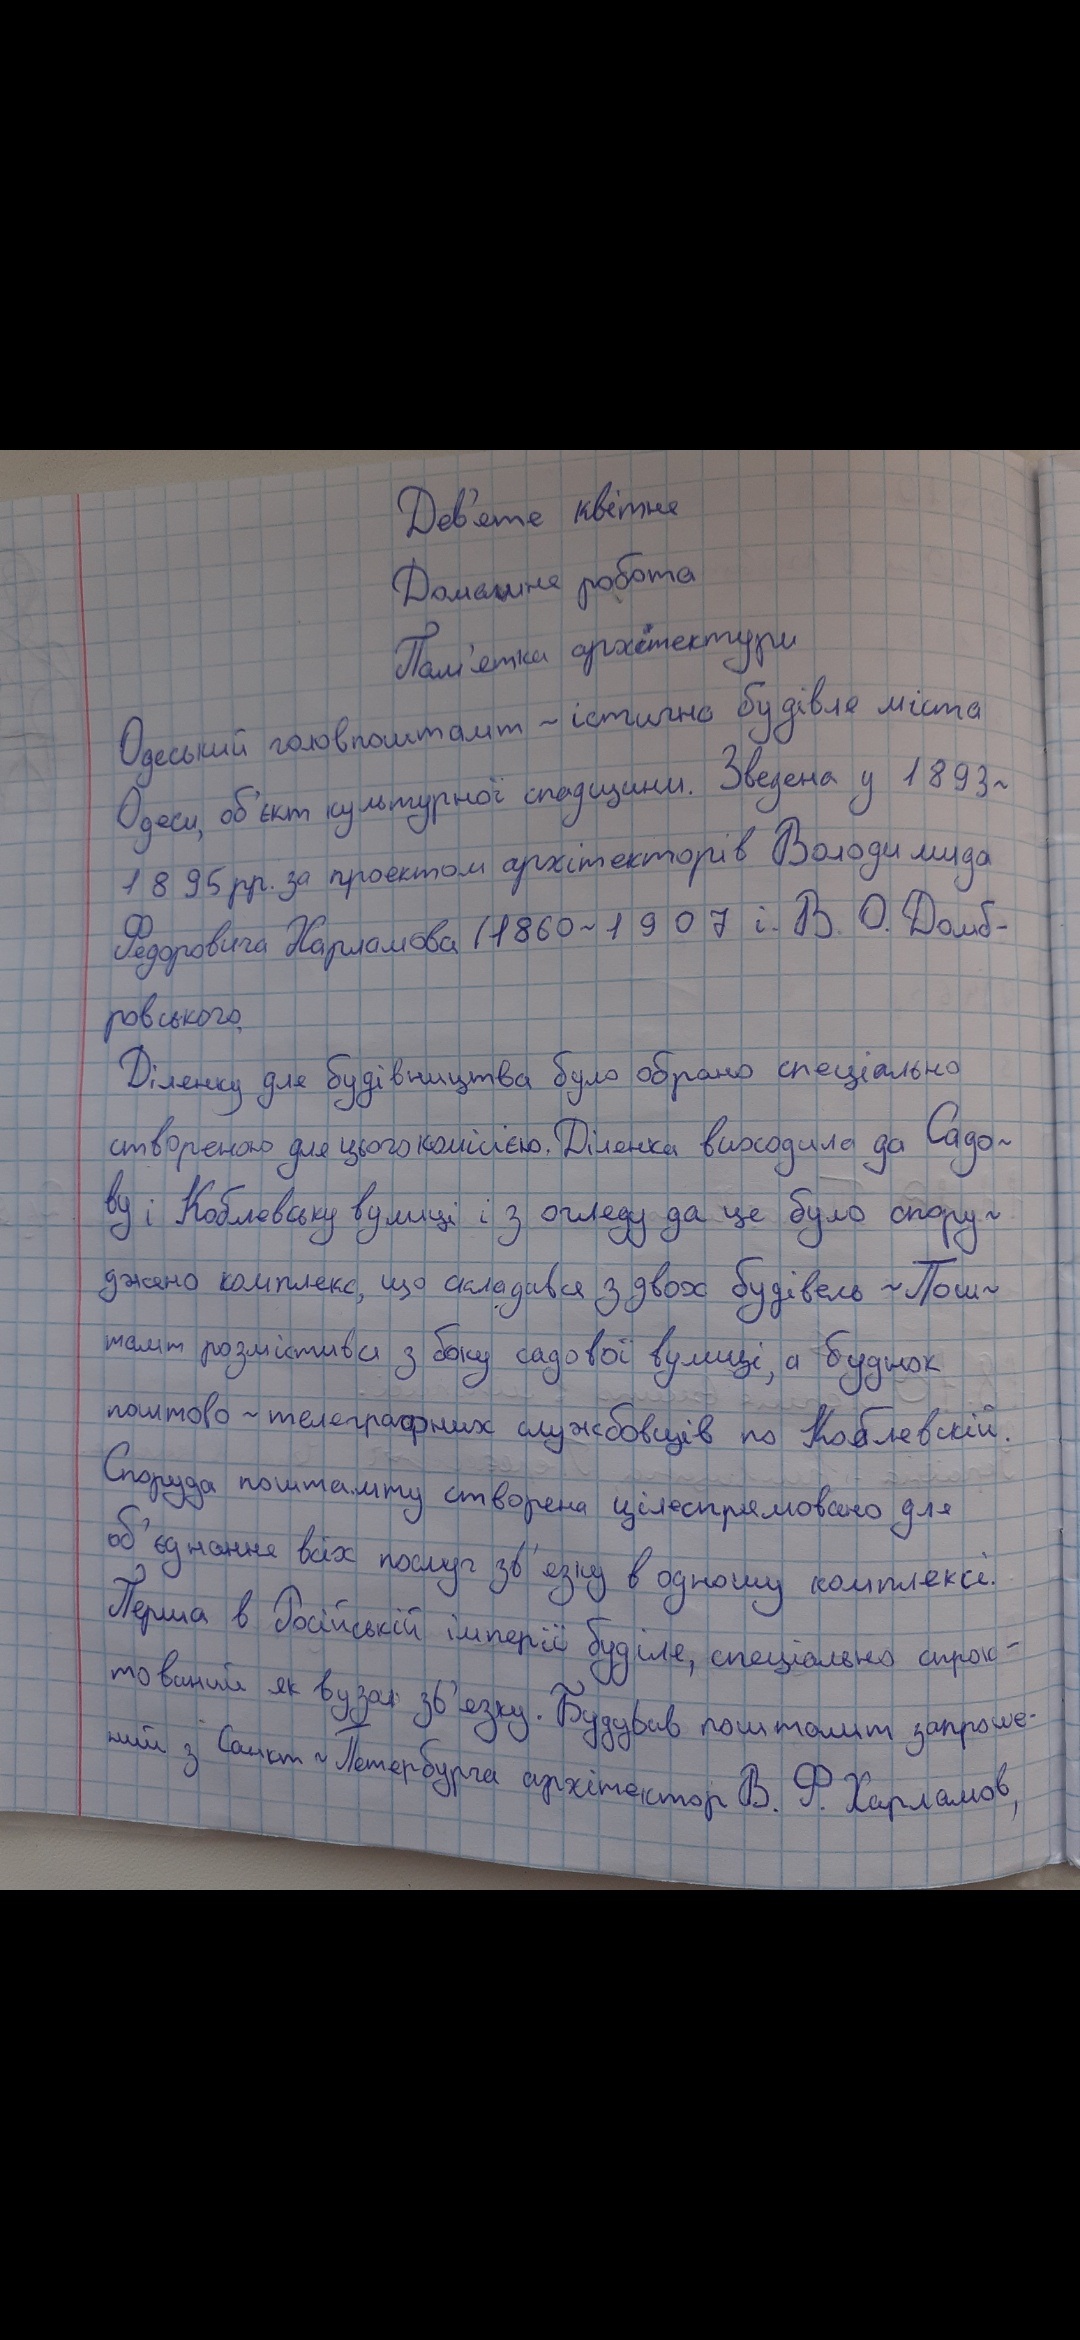 Дев'яте квітня
Домашня робота
Пам'ятка архітектури
Одеський головпоштамт ~ істична будівля міста
Одеси, об'єкт культурної спадщини. Зведена у 1893~
1895 рр. за проектом архітекторів Володимида
Федоровича Харламова (1860~1907 і. В. О. Домб-
ровського,
Ділянку для будівництва було обрано спеціально
створеною для цього комісією. Ділянка виходила да Садо~
ву і Коблевську вулиці і з огляду да це було спору~
джено комплекс, що складався з двох будівель ~ Пош~
тамт розмістився з боку садової вулиці, а буднок
поштово ~ телеграфних службовців по Коблевскій.
Споруда поштамту створена цілеспрямовано для
об'єднання всіх послуг зв'язку в одному комплексі.
Перша в Російській імперії буділя, спеціально спроє-
тований як вузол зв'язку. Будував поштамт запроше-
ний з Санкт ~ Петербурга архітектор В. Ф. Харламов,